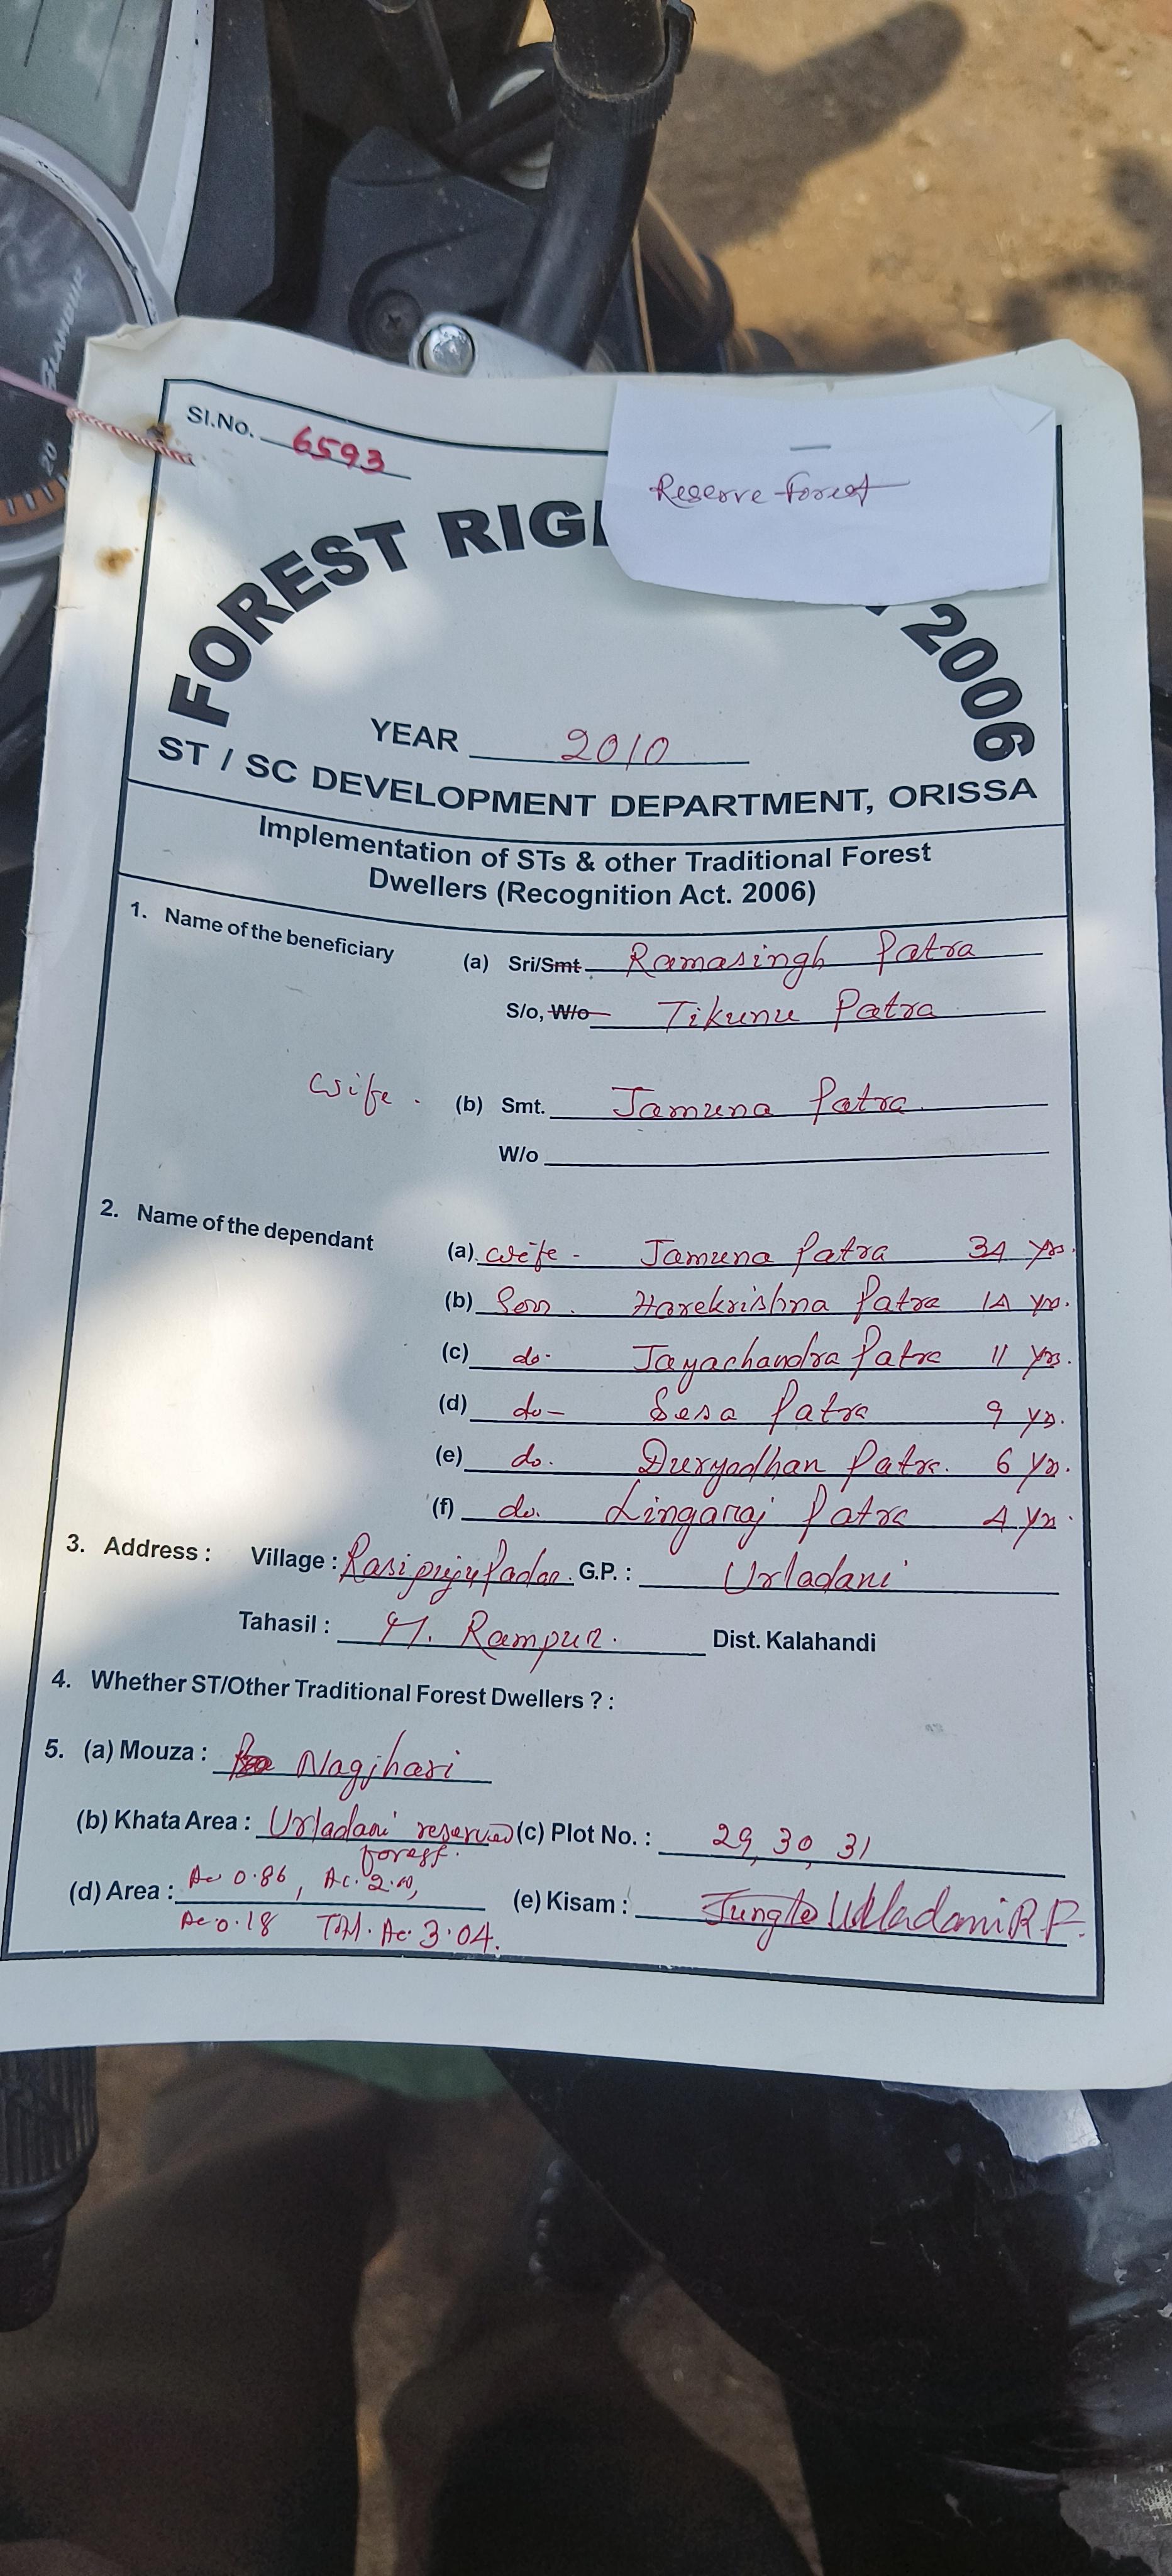 Sl.No. 6593
Reserve Forest
FOREST RIG
2006
YEAR 2010
ST / SC DEVELOPMENT DEPARTMENT, ORISSA
Implementation of STs & other Traditional Forest
Dwellers (Recognition Act. 2006)
1. Name of the beneficiary (a) Sri/Smt. Ramasingh Patra
S/o, W/o Tikunu Patra
Wife. (b) Smt. Jamuna Patra
W/o
2. Name of the dependant
(a) Wife - Jamuna Patra 34 yrs.
(b) Son. Harekrishna Patra 14 yrs.
(c) do- Jayachandra Patra 11 yrs.
(d) do- Sesa Patra 9 yrs.
(e) do. Duryodhan Patra. 6 yrs.
(f) do. Lingaraj Patra 4 yrs.
3. Address : Village : G.P. : Urladani
Tahasil : M. Rampur. Dist. Kalahandi
4. Whether ST/Other Traditional Forest Dwellers ? :
5. (a) Mouza : Nagjhari
(b) Khata Area : Urladani reserved (c) Plot No. : 29, 30, 31
forest.
(d) Area : Ac 0.86, Ac. 2.00, (e) Kisam : Jungle Urladani R.F.
Ac 0.18 Total. Ac. 3.04.